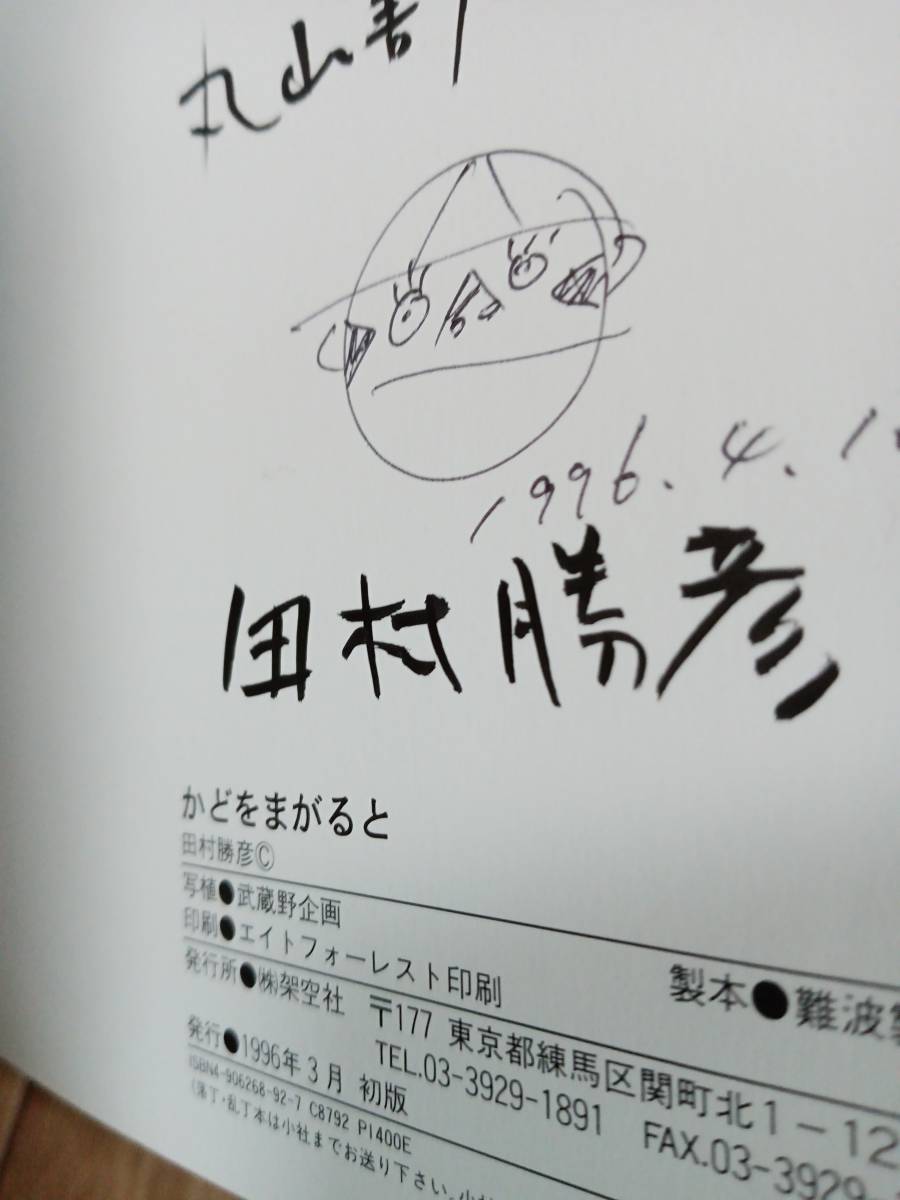 丸山
1996.4.1
田村勝彦
かどをまがると
田村勝彦©
写植●武蔵野企画
印刷●エイトフォーレスト印刷
製本●難波製
発行所●㈱架空社 〒177 東京都練馬区関町北1-12
TEL.03-3929-1891 FAX.03-3929
発行●1996年3月 初版
ISBN4-906268-92-7 C8792 P1400E
(落丁・乱丁本は小社までお送り下さい。小社